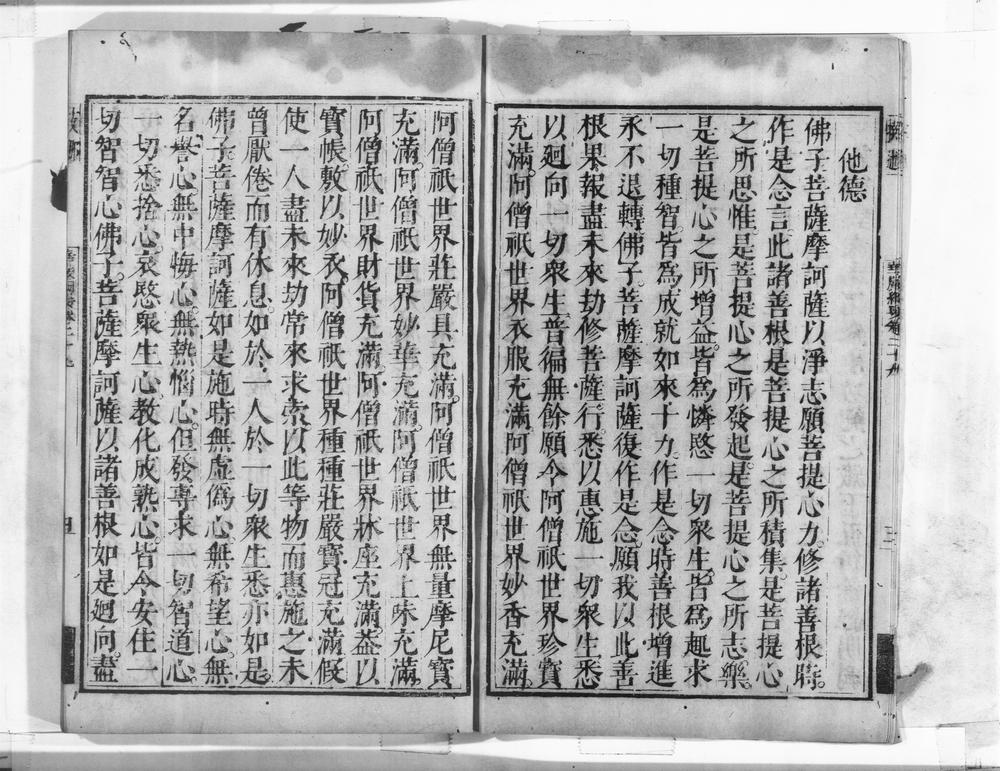 他德
佛子菩薩摩訶薩以淨志願菩提心力修諸善根時
作是念言此諸善根是菩提心之所積集是菩提心
之所思惟是菩提心之所發起是菩提心之所志樂
是菩提心之所增益皆爲憐愍一切衆生皆爲趣求
一切種智皆爲成就如來十力作是念時善根增進
永不退轉佛子菩薩摩訶薩復作是念願我以此善
根果報盡未來劫修菩薩行悉以惠施一切衆生悉
以廻向一切衆生普徧無餘願令阿僧祇世界珍寶
充滿阿僧祇世界衣服充滿阿僧祇世界妙香充滿
阿僧祇世界莊嚴具充滿阿僧祇世界無量摩尼寶
充滿阿僧祇世界妙華充滿阿僧祇世界上味充滿
阿僧祇世界財貨充滿阿僧祇世界牀座充滿葢以
寶帳敷以妙衣阿僧祇世界種種莊嚴寶冠充滿假
使一人盡未來劫常來求索以此等物而惠施之未
曾厭倦而有休息如於一人於一切衆生悉亦如是
佛子菩薩摩訶薩如是施時無虛僞心無希望心無
名譽心無中悔心無熱惱心但發專求一切智道心
一切悉捨心哀愍衆生心教化成熟心皆令安住一
切智智心佛子菩薩摩訶薩以諸善根如是廻向盡